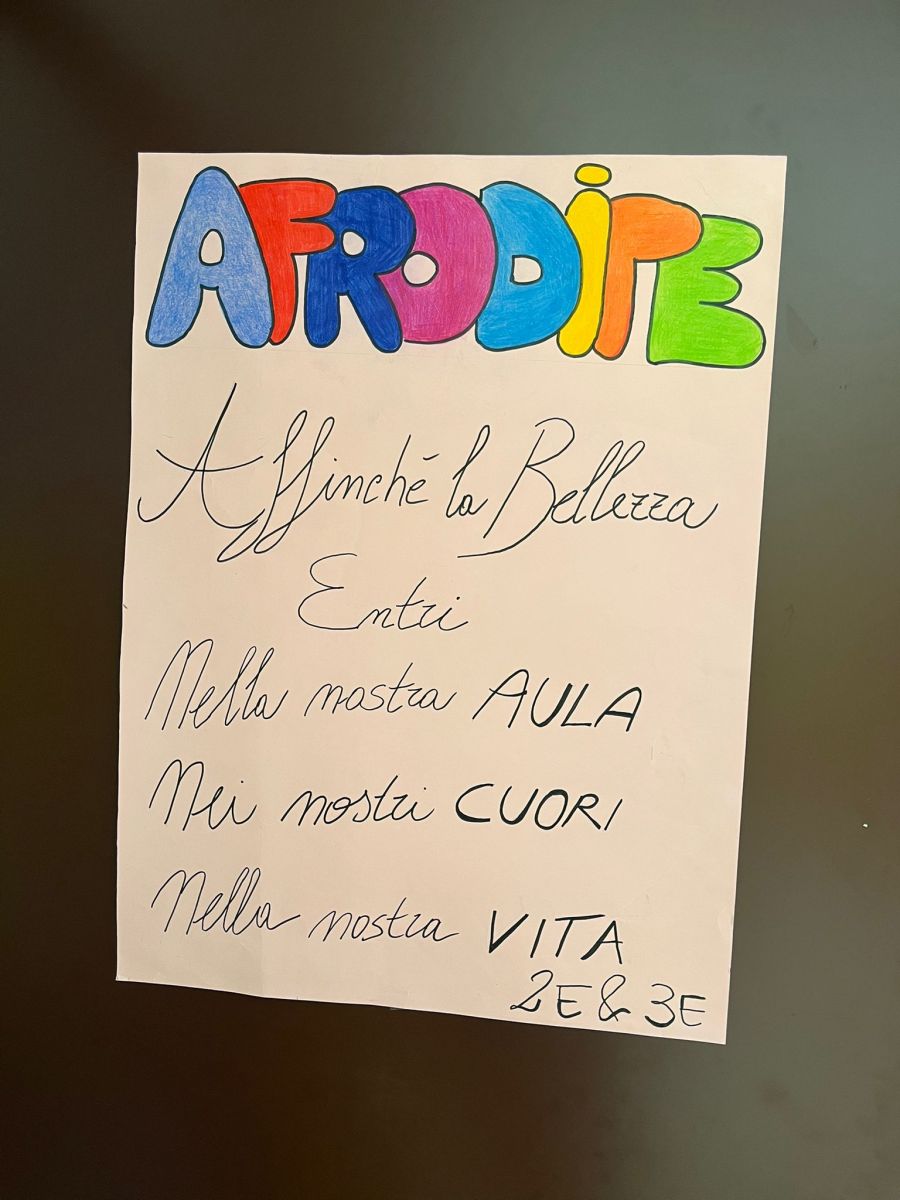 AFRODiTE
Affinché la Bellezza
Entri
Nella nostra AULA
Nei nostri CUORI
Nella nostra VITA
2E & 3E